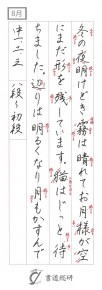 8月
冬の夜明けどき霧は晴れてお月様が空
にまだ形を残しています。猫はじっと待
ちました。辺りは明るくなり月もかすんで
中、二、三 八段〜初段
書道総研